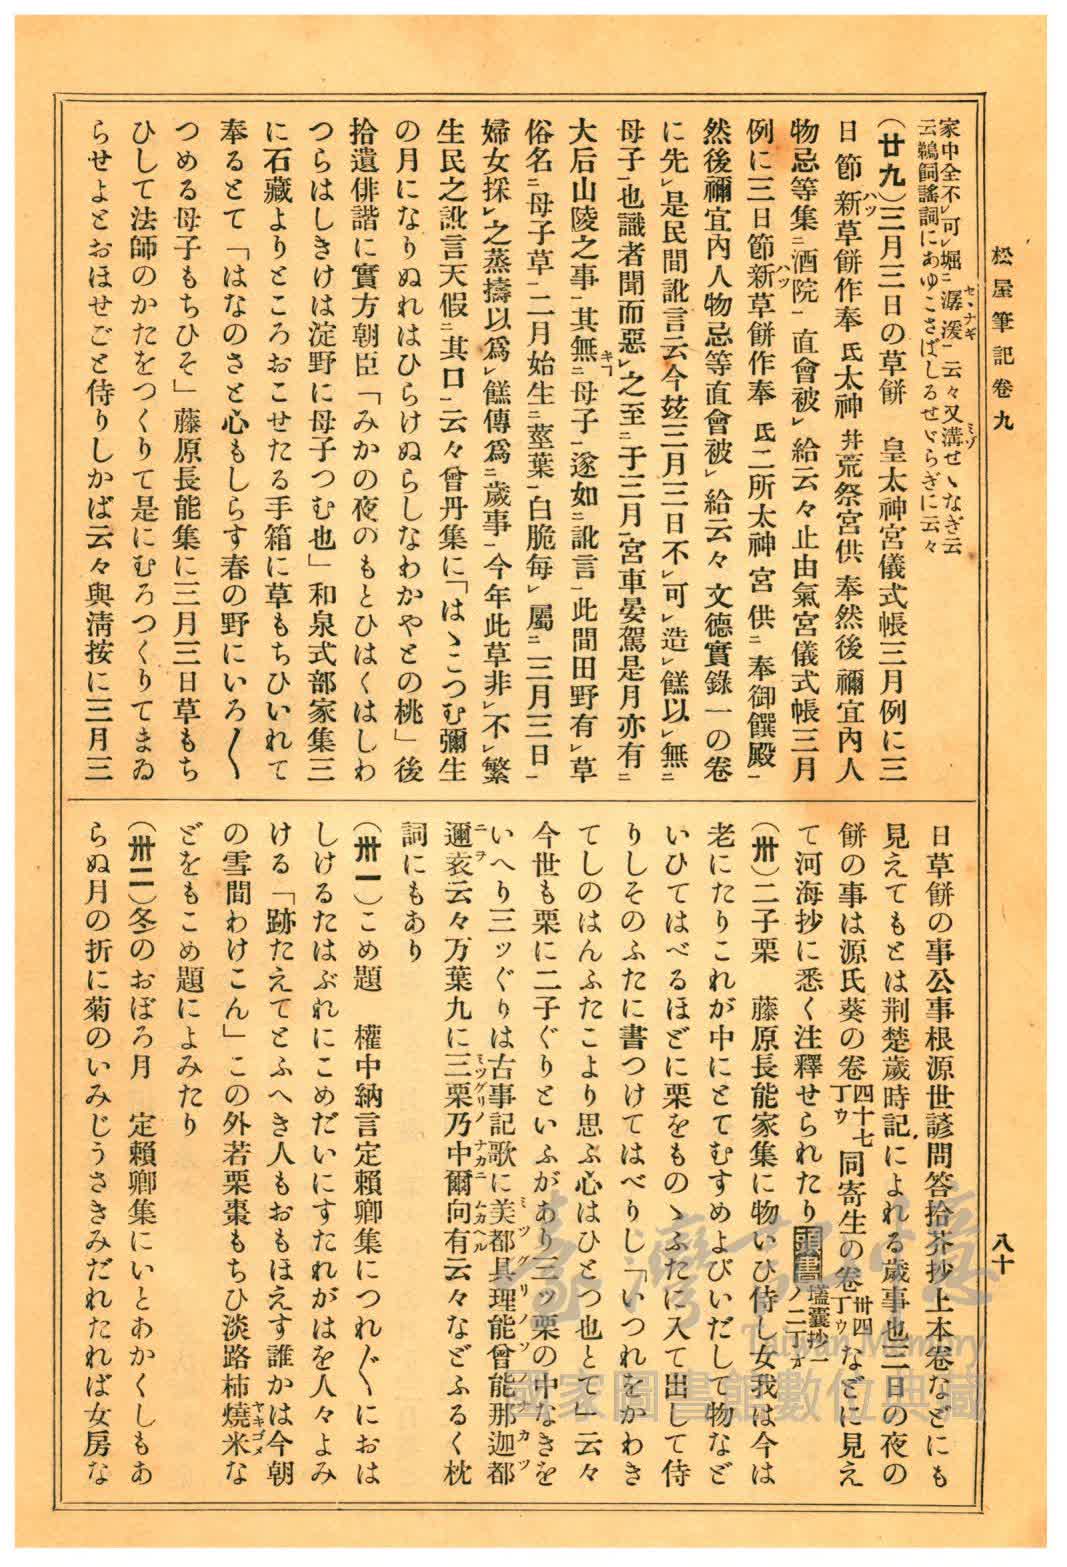 松屋筆記卷九
八十
家中全不レ可レ堀ニ潺湲一云々又溝せゝなぎ云
云鵜飼謠詞にあゆこさばしるせゞらぎに云々
(廿九)三月三日の草餅　皇太神宮儀式帳三月例に三
日節新草餅作奉氐太神井荒祭宮供奉然後禰宜内人
物忌等集ニ酒院一直會被レ給云々止由氣宮儀式帳三月
例に三日節新草餅作奉氐二所太神宮供ニ奉御饌殿一
然後禰宜内人物忌等直會被レ給云々文德實錄一の卷
に先レ是民間訛言云今玆三月三日不レ可レ造レ餻以レ無ニ
母子一也識者聞而惡レ之至ニ于三月一宮車晏駕是月亦有ニ
大后山陵之事一其無ニ母子一遂如ニ訛言一此間田野有レ草
俗名ニ母子草一二月始生ニ莖葉一白脆每レ屬ニ三月三日一
婦女採レ之蒸擣以爲レ餻傳爲ニ歲事一今年此草非レ不レ繁
生民之訛言天假ニ其口一云々曾丹集に「はゝこつむ彌生
の月になりぬれはひらけぬらしなわかやとの桃」後
拾遺俳諧に實方朝臣「みかの夜のもとひはくはしわ
つらはしきけは淀野に母子つむ也」和泉式部家集三
に石藏よりところおこせたる手箱に草もちひいれて
奉るとて「はなのさと心もしらす春の野にいろ〱
つめる母子もちひそ」藤原長能集に三月三日草もち
ひして法師のかたをつくりて是にむろつくりてまゐ
らせよとおほせごと侍りしかば云々與淸按に三月三
日草餅の事公事根源世諺問答拾芥抄上本卷などにも
見えてもとは荆楚歲時記によれる歲事也三日の夜の
餅の事は源氏葵の卷四十七丁ウ同寄生の卷卅四丁ウなどに見え
て河海抄に悉く注釋せられたり頭書壒囊抄一ノ二丁オ
(卅)二子栗　藤原長能家集に物いひ侍し女我は今は
老にたりこれが中にとてむすめよびいだして物など
いひてはべるほどに栗をものゝふたに入て出して侍
りしそのふたに書つけてはべりし「いつれをかわき
てしのはんふたこより思ふ心はひとつ也とて」云々
今世も栗に二子ぐりといふがあり三ッ栗の中なきを
いへり三ッぐりは古事記歌に美都具理能曾能那迦都
邇袁云々万葉九に三栗乃中爾向有云々などふるく枕
詞にもあり
(卅一)こめ題　權中納言定賴卿集につれ〲におは
しけるたはぶれにこめだいにすたれがはを人々よみ
ける「跡たえてとふへき人もおもほえす誰かは今朝
の雪間わけこん」この外若栗棗もちひ淡路柿燒米な
どをもこめ題によみたり
(卅二)冬のおぼろ月　定賴卿集にいとあかくしもあ
らぬ月の折に菊のいみじうさきみだれたれば女房な
臺灣記憶
Taiwan Memory
國家圖書館數位典藏